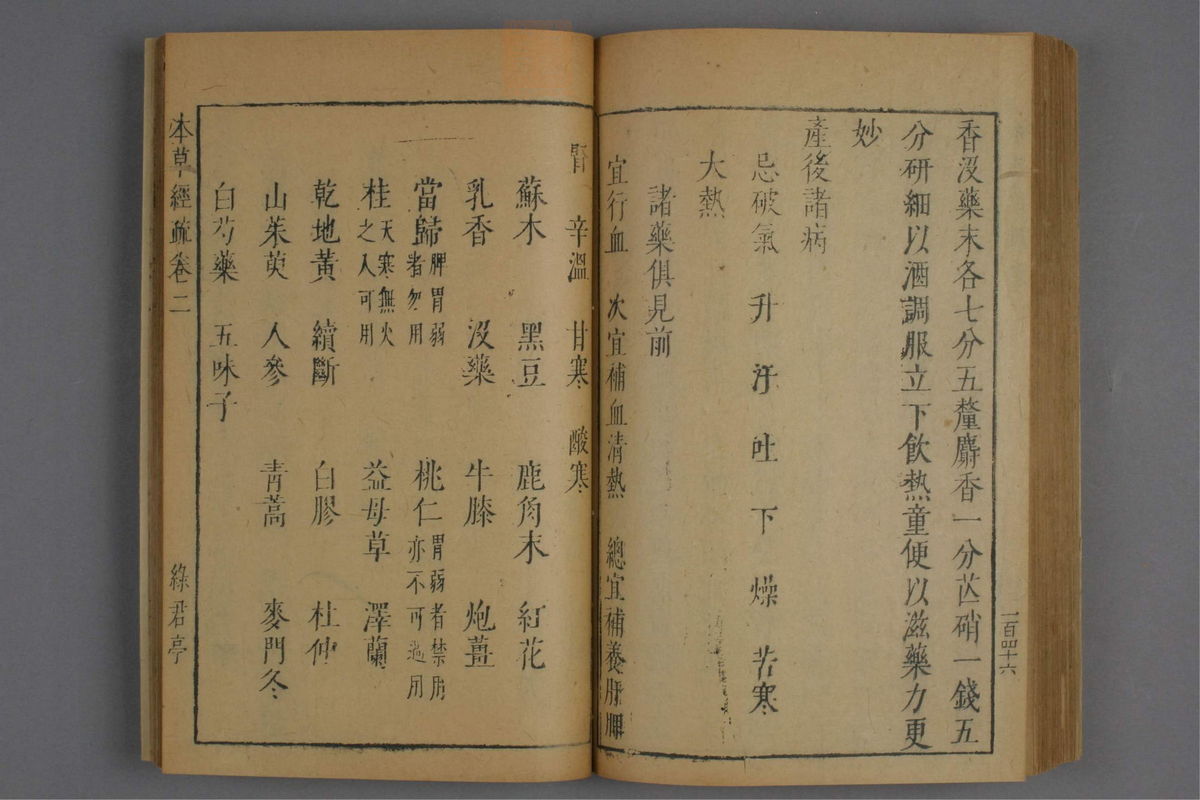 香沒藥末各七分五釐麝香一分芒硝一錢五
分研細以酒調服立下飲熱童便以滋藥力更
妙
產後諸病
忌破氣 升 汗 吐 下 燥 苦寒
大熱
諸藥俱見前
宜行血 次宜補血清熱 總宜補養肝脾
一百四十六
腎 辛溫 甘寒 酸寒
蘇木 黑豆 鹿角末 紅花
乳香 沒藥 牛膝 炮薑
當歸脾胃弱者勿用 桃仁胃弱者禁用亦不可過用
桂天寒無火之人可用 益母草 澤蘭
乾地黃 續斷 白膠 杜仲
山茱萸 人參 青蒿 麥門冬
白芍藥 五味子
本草經疏卷二 綠君亭